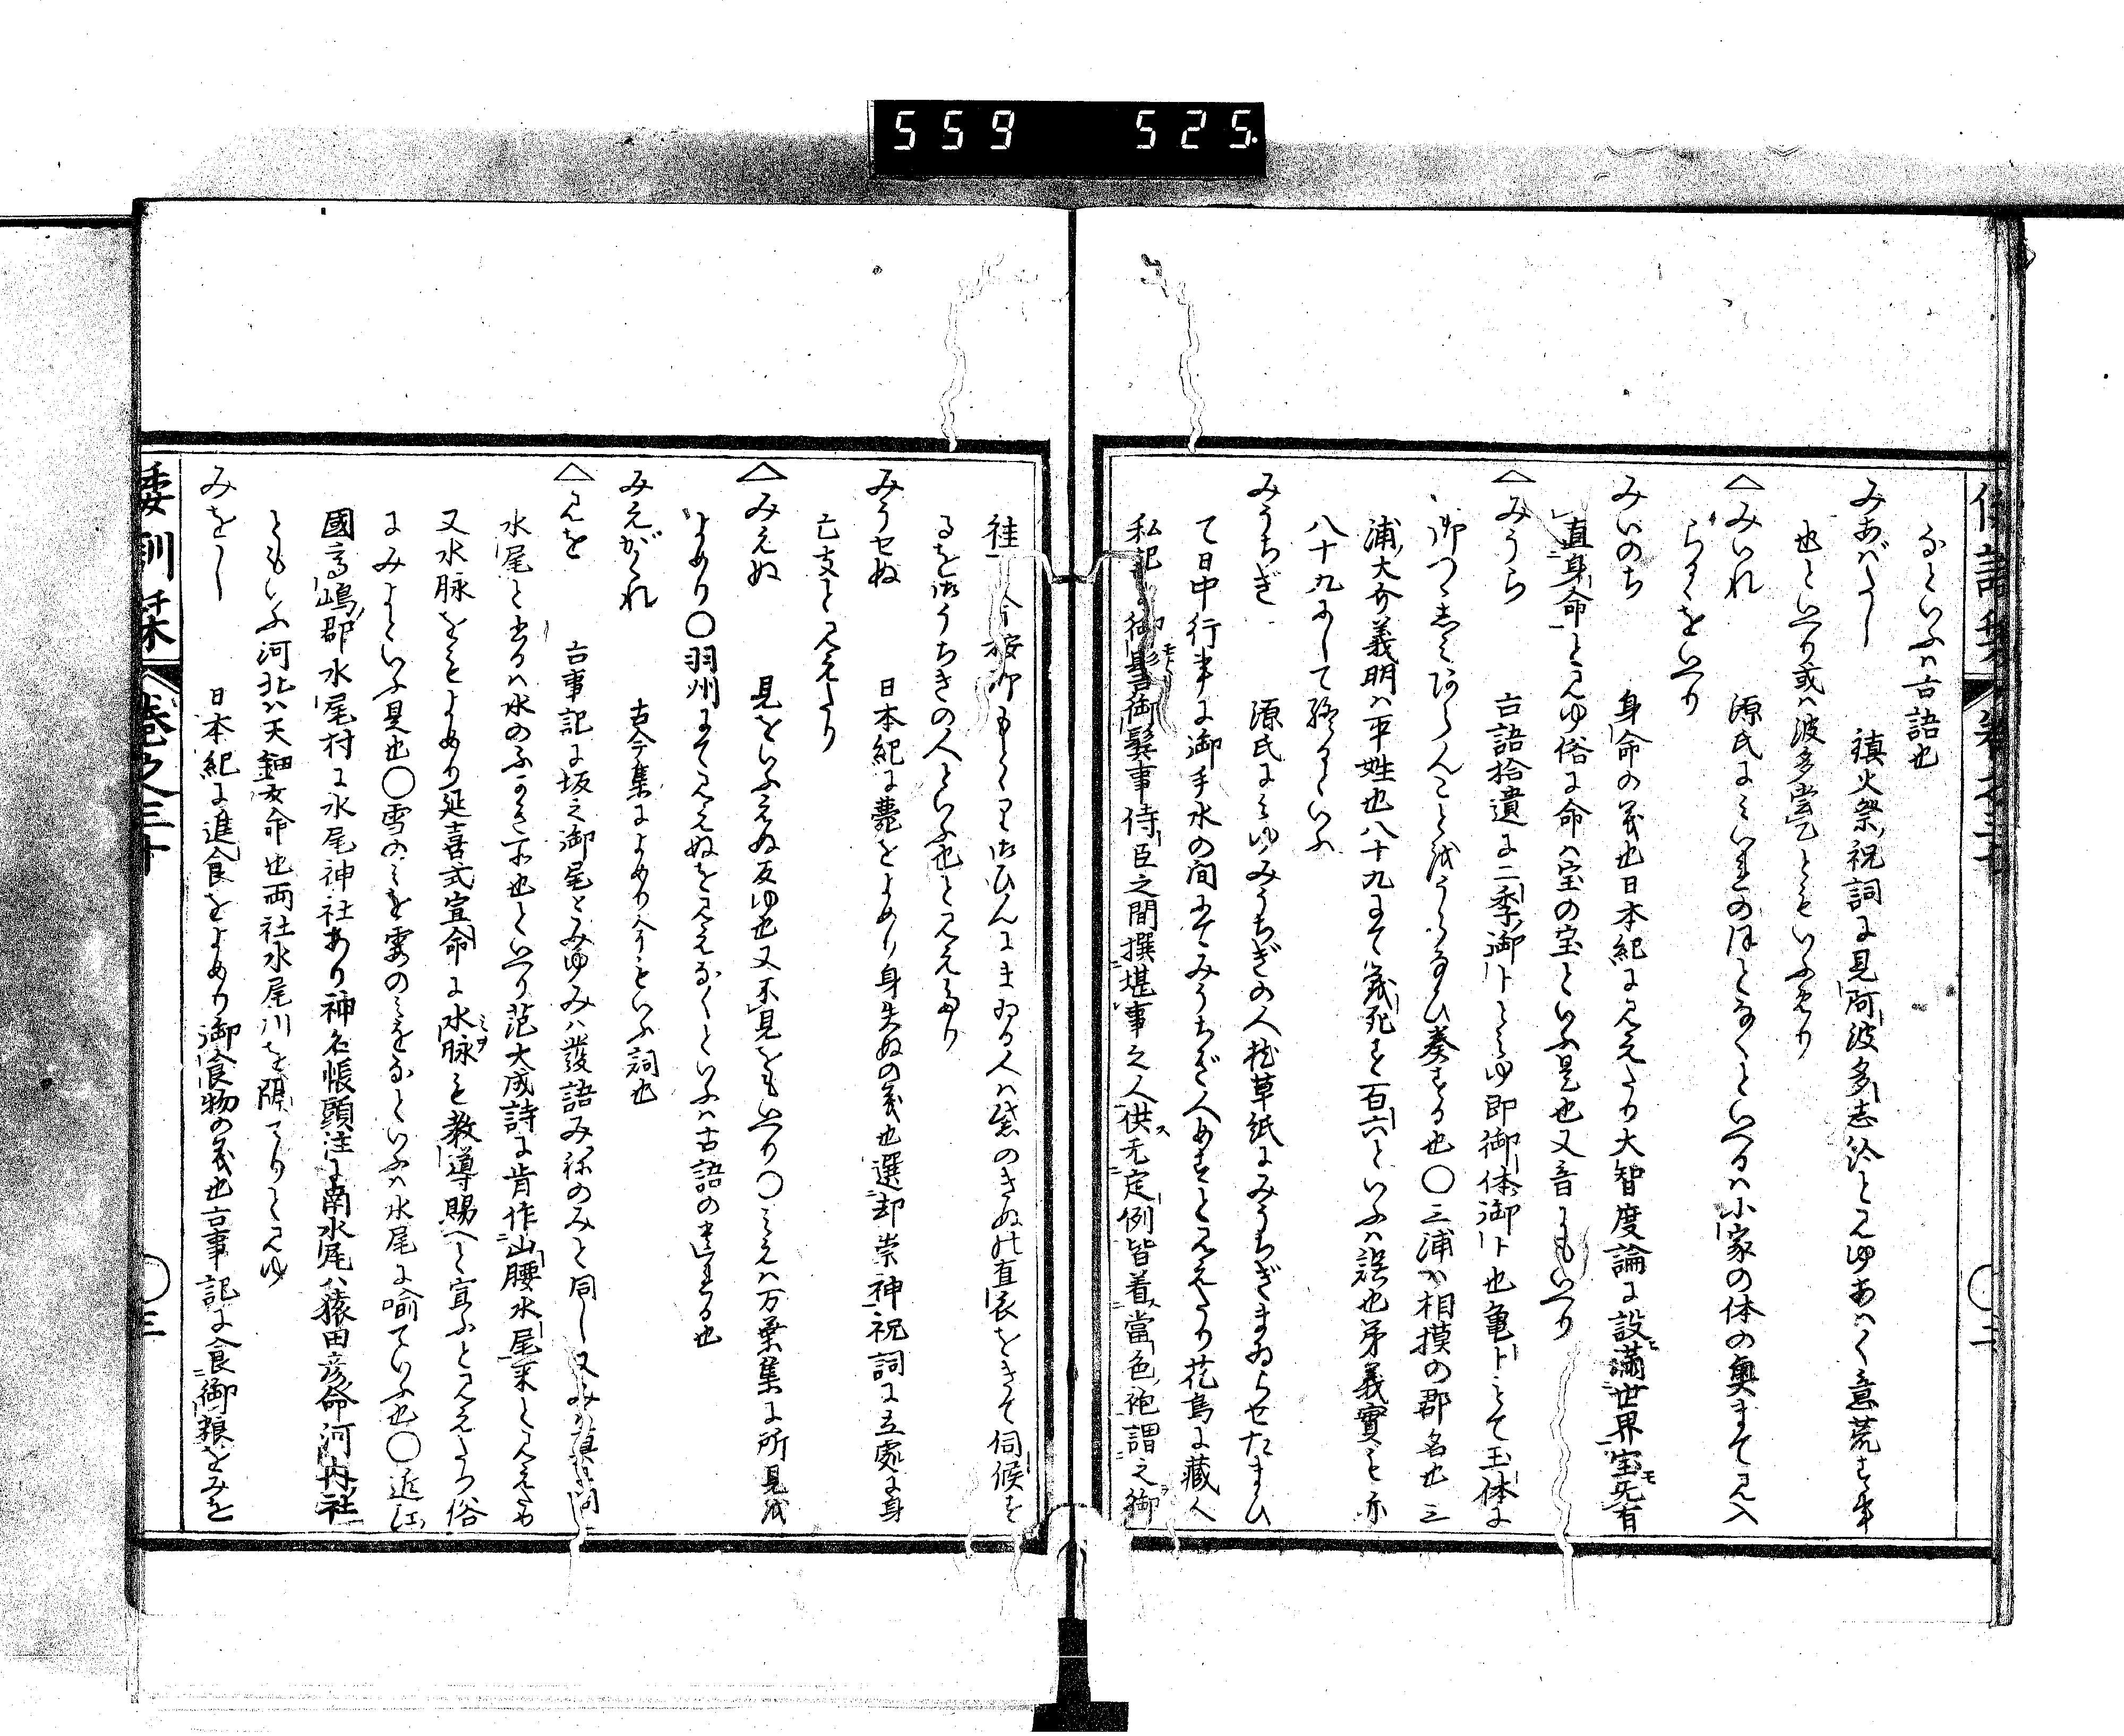 559 525
なといふハ古語也
みあばたし 鎮火祭祝詞に見阿波多志給とみゆあハく意荒す事
也といへり或ハ波多焭ともいふめり
△みいれ 源氏にみいれのほとなくといへるハ小家の体の奥まて見入
らるゝをいへり
みいのち 身命の義也日本紀に見えたり大智度論に設満世界宝无有
直身命とみゆ俗に命ハ宝の宝といふ是也又音にもいへり
△みうら 古語拾遺に二季御卜とみゆ即御体御卜也亀卜にて玉体に
御つゝしみあらんことをうらなひ奏する也〇三浦ハ相摸の郡名也三
浦大介義明ハ平姓也八十九にて戦死す百六といふハ誤也弟義實も亦
八十九にして終るといふ
みうちぎ 源氏にみゆみうちぎの人枕草紙にみうちぎまゐらせたまひ
て日中行事に御手水の間にてみうちぎ人めすと見えたり花鳥に蔵人
私記に御髻御鬢事侍臣之間撰堪事之人供无定例皆着當色袍謂之御
袿 今按御もとゝり御ひんにまゐる人ハ袋のきぬの直衣をきて伺候す
るを御うちきの人といふ也と見えたり
みうせぬ 日本紀に薨をよめり身失ぬの義也遷却崇神祝詞に立處に身
亡支と見えたり
△みえぬ 見をいふえぬ反ゆ也又不見をもいへり〇みえハ万葉集に所見を
よめり〇羽州にてみえぬをみえなくといふハ古語の遺れる也
みえがくれ 古今集によめり今もいふ詞也
△みを 古事記に坂之御尾とみゆみハ發語み祢のみと同し又みハ真
水尾と書るハ水のふかき所也といへり范大成詩に肯作山腰水尾来と見えたり
又水脉をもよめり延喜式宣命に水脉も教導賜へと宣ふと見えたり俗
にみよといふ是也〇雪のみを雲のみをなといふハ水尾に喩ていふ也〇近江
國高嶋郡水尾村に水尾神社あり神名帳頭注に南水尾ハ猿田彦命河内社
ともいふ河北ハ天鈿女命也両社水尾川を隔てりとみゆ
みをし 日本紀に進食をよめり御食物の義也古事記に食御粮をみを
倭訓栞 巻之三十 〇三